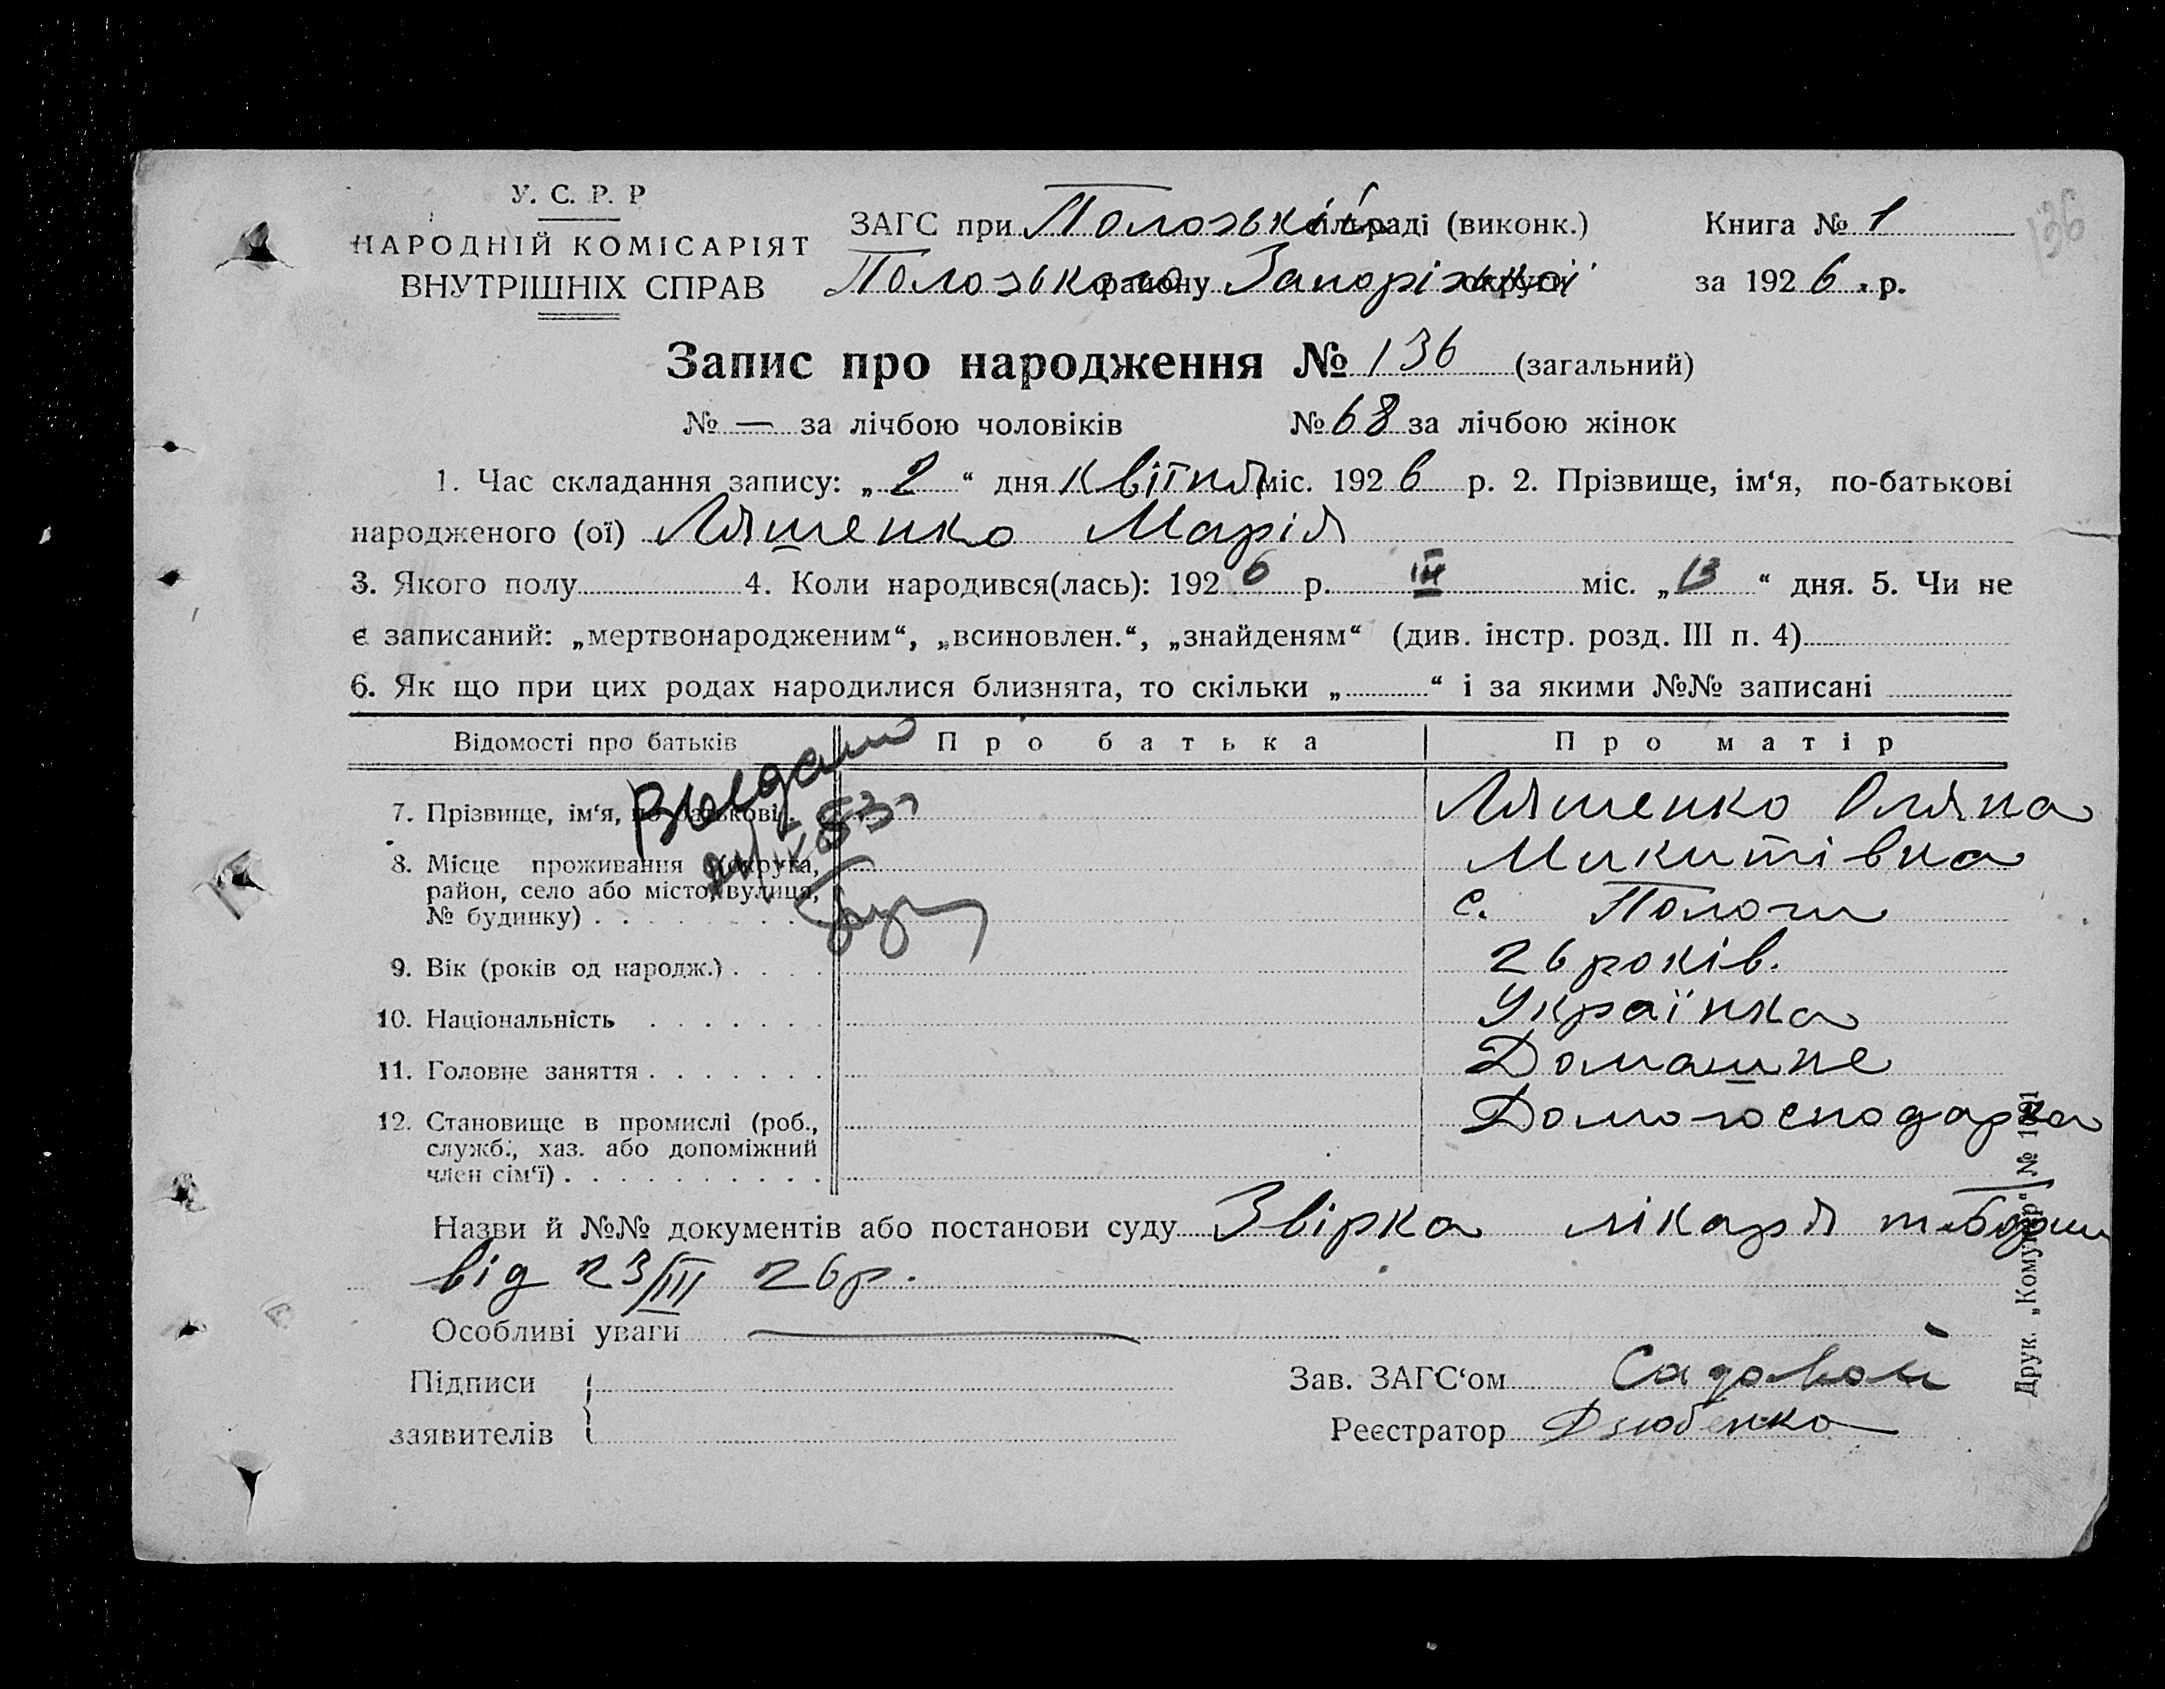 У. С. Р. Р
НАРОДНІЙ КОМІСАРІЯТ
ВНУТРІШНІХ СПРАВ
ЗАГС при Полозській сільраді (виконк.)
Книга № 1
136
Полозького району Запорізької округи
за 1926 р.
Запис про народження № 136 (загальний)
№ — за лічбою чоловіків № 68 за лічбою жінок
1. Час складання запису: „2“ дня квітня міс. 1926 р. 2. Прізвище, ім‘я, по-батькові
народженого (ої) Ляшенко Марія
3. Якого полу 4. Коли народився(лась): 1926 р. III міс. „13“ дня. 5. Чи не
є записаний: „мертвонародженим“, „всиновлен.“, „знайденям“ (див. інстр. розд. III п. 4)
6. Як що при цих родах народилися близнята, то скільки „ “ і за якими №№ записані
Відомості про батьків Про батька Про матір
7. Прізвище, ім‘я, по батькові Ляшенко Оляна
Микитівна
8. Місце проживання (округа,
район, село або місто, вулиця,
№ будинку) с. Пологи
9. Вік (років од народж.) 26 років.
10. Національність Українка
11. Головне заняття Домашне
12. Становище в промислі (роб., Домогосподарка
служб., хаз. або допоміжний
член сім‘ї)
Назви й №№ документів або постанови суду Звірка лікаря
від 23/III 26р.
Особливі уваги
Підписи
заявителів
Зав. ЗАГС‘ом Садовой
Реєстратор Дзюбенко
Друк. „Комунар“ №